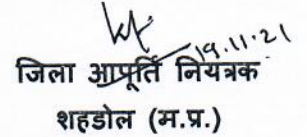 19.11.21
जिला आपूर्ति नियत्रक
शहडोल (म.प्र.)